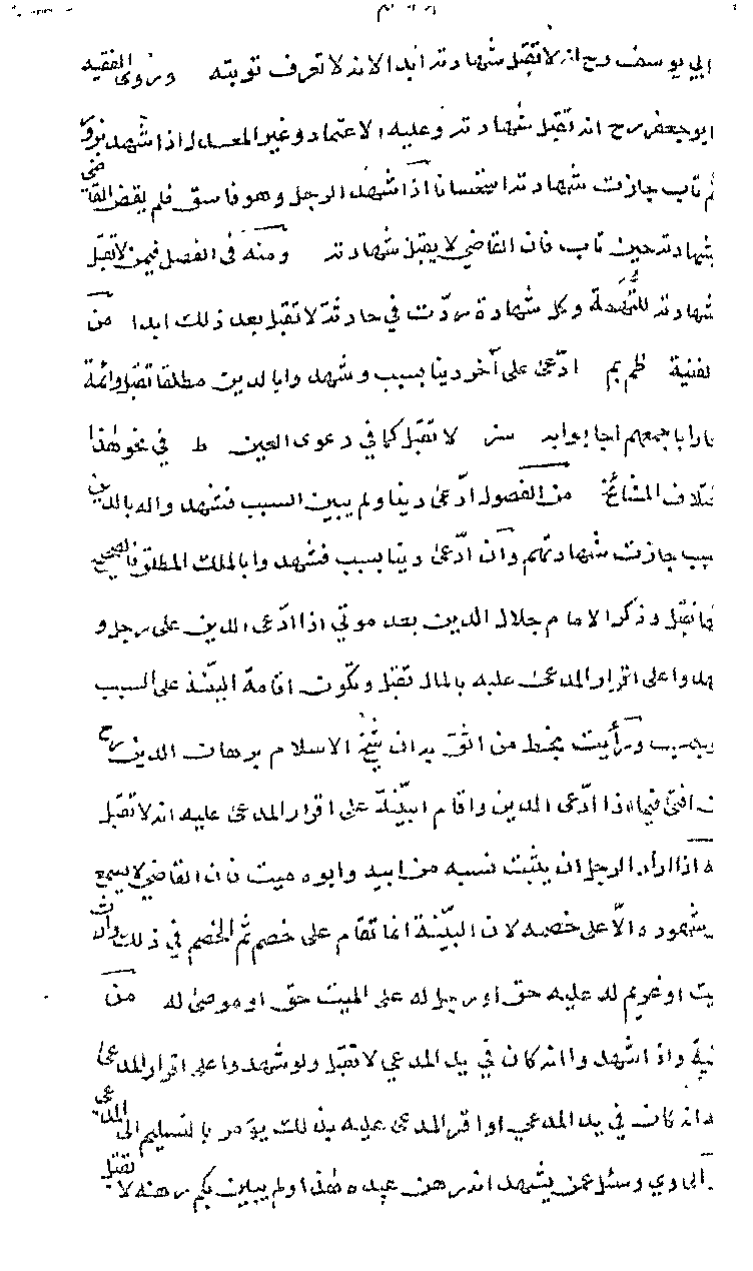 ابي يوسف رح انه لا تقبل شهادته ابدا لانه لا تعرف توبته وروى الفقيه
ابو جعفر رح انه تقبل شهادته وعليه الاعتماد وغير المعدل اذا شهد بزور
ثم تاب جازت شهادته استحسانا اذا شهد الرجل وهو فاسق فلم يقض القاضي
بشهادته حين تاب فان القاضي لا يقبل شهادته ومنه في الفصل فيمن لا تقبل
شهادته للتهمة وكل شهادة ردّت في حادثة لا تقبل بعد ذلك ابدا من
لقنية ظم بم ادّعى على آخر دينا بسبب وشهدوا بالدين مطلقا تقبل وائمة
بخارا باجمعهم اجابوا به سز لا تقبل كما في دعوى العين ط في نحو هذا
ختلاف المشائخ من الفصول ادّعى دينا ولم يبين السبب فشهدوا له بالدين
بسبب جازت شهادتهم وان ادّعى دينا بسبب فشهدوا بالملك المطلق فالصحيح
انها تقبل وذكر الامام جلال الدين بعد موتي اذا ادّعى الدين على رجل و
شهدوا على اقرار المدعى عليه بالمال تقبل وتكون اقامة البيّنة على السبب
ورأيت بخط من اثق به ان شيخ الاسلام برهان الدين رح
افتى فيما اذا ادّعى الدين واقام البيّنة على اقرار المدعى عليه انه لا تقبل
اذا اراد الرجل ان يثبت نسبه من ابيه وابوه ميت فان القاضي لا يسمع
شهوده الّا على خصم لان البيّنة انما تقام على خصم ثم الخصم في ذلك وارث
ميت او غريم له عليه حق او رجل له على الميت حق او موصى له من
قنية واذا شهدوا انه كان في يد المدعي لا تقبل ولو شهدوا على اقرار المدعى
انه كان في يد المدعي او اقر المدعى عليه بذلك يؤمر بالتسليم الى المدعي
وسئل عمن يشهد انه رهن عبده هذا ولم يبين بكم رهنه لا تقبل